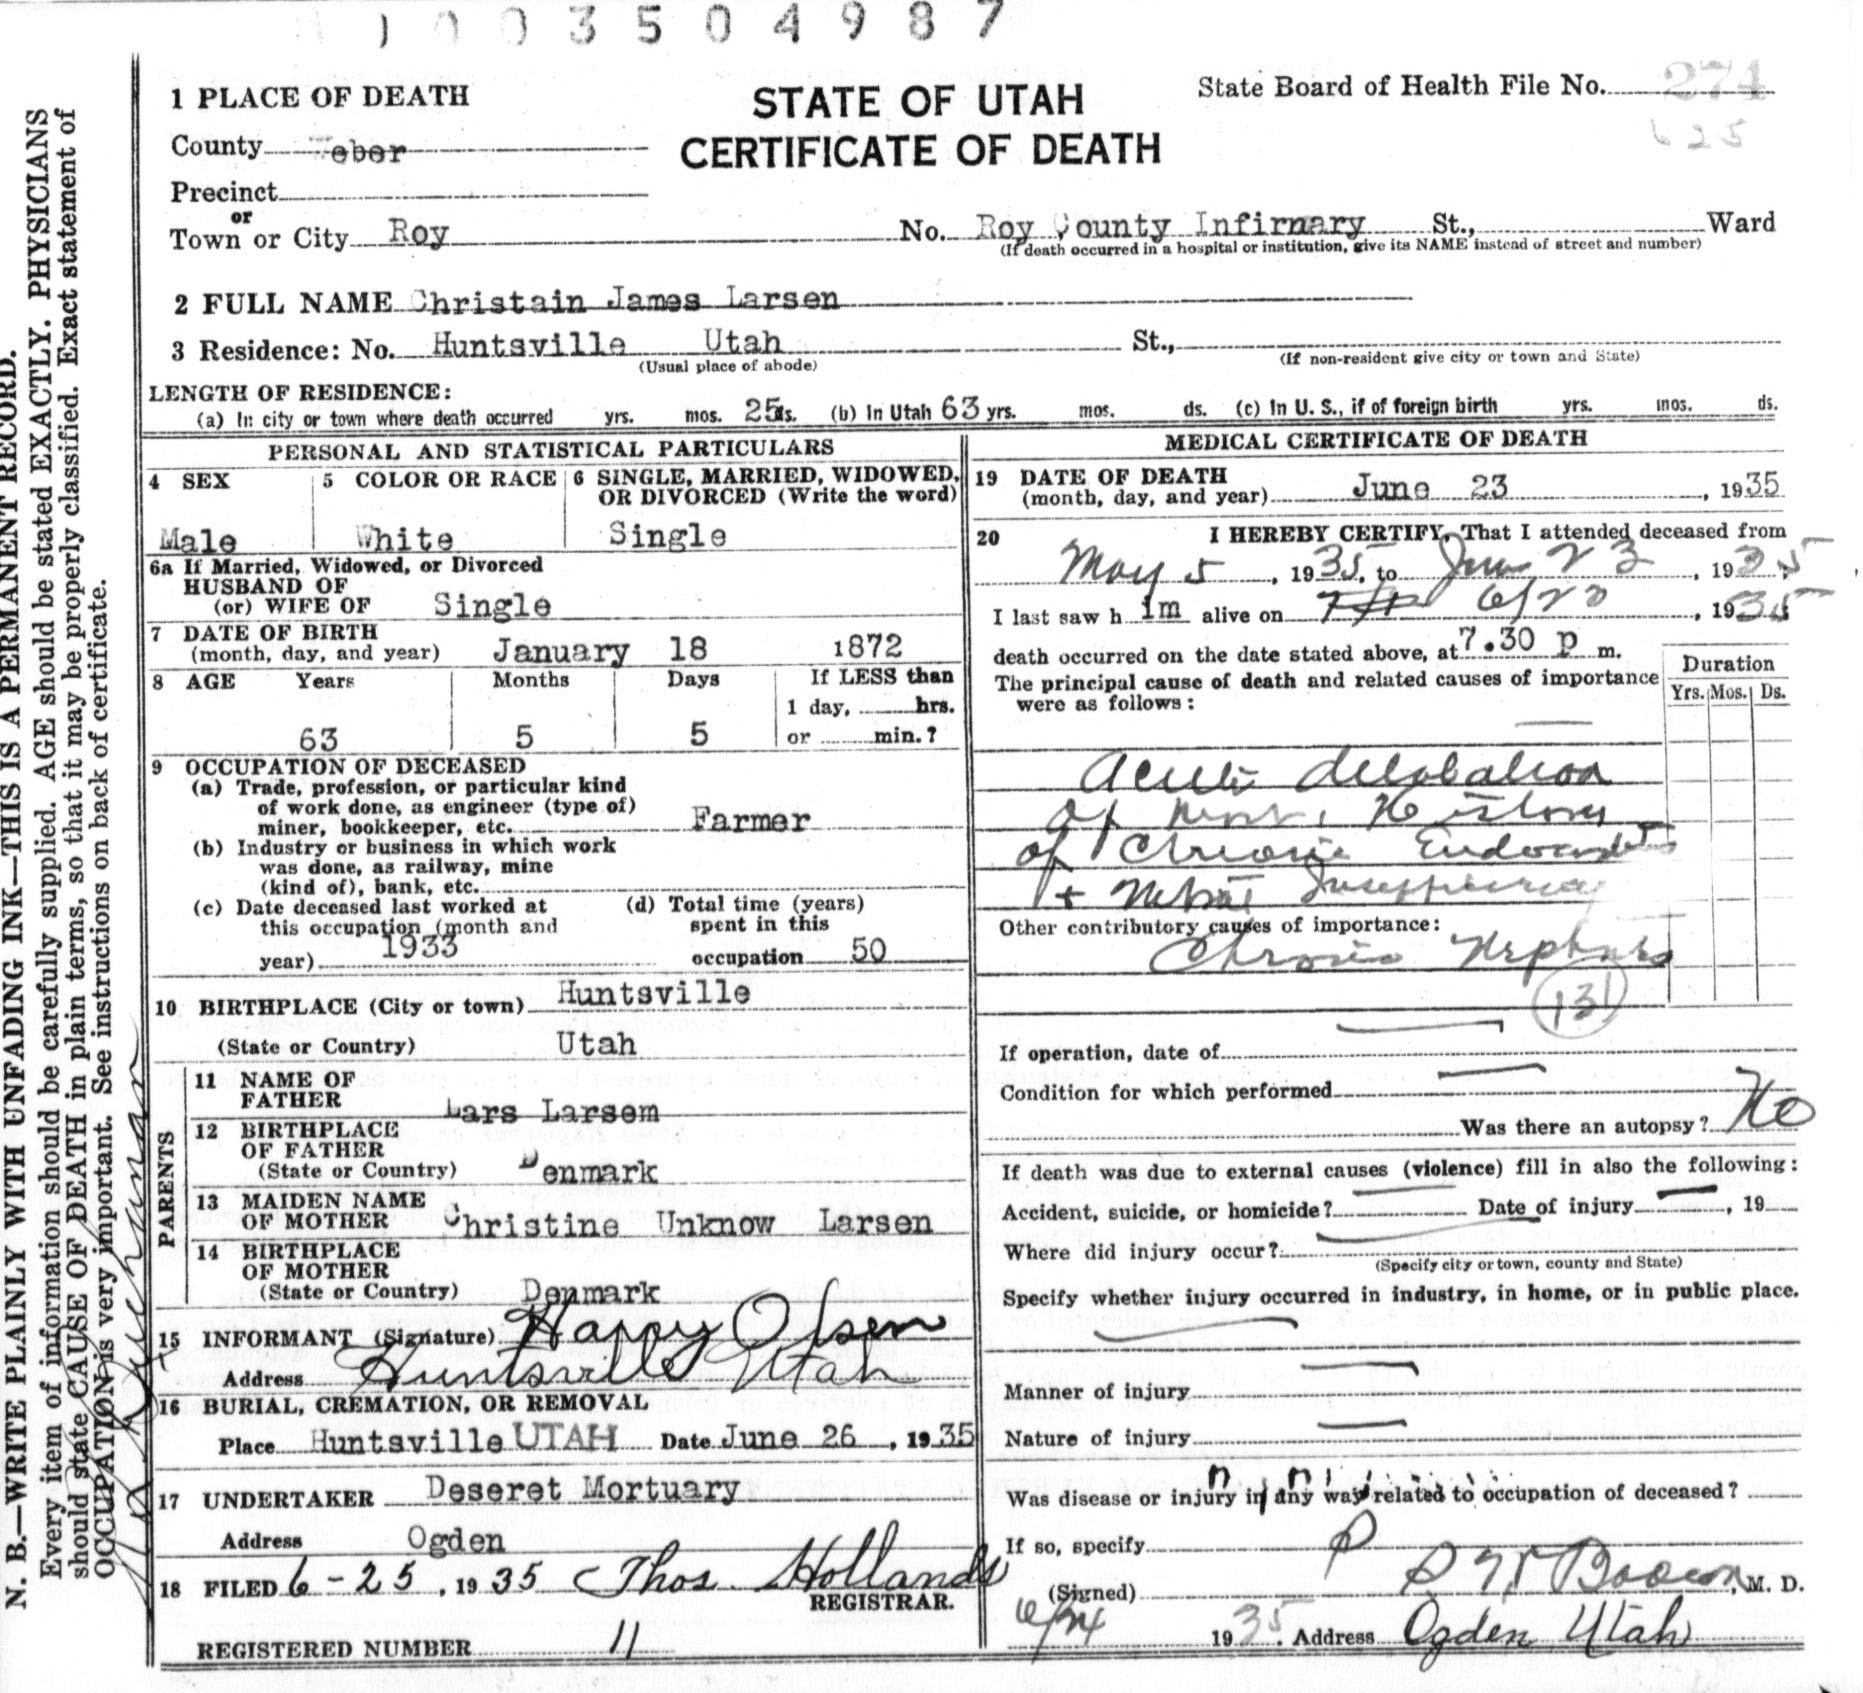 1003504987
1 PLACE OF DEATH
STATE OF UTAH
CERTIFICATE OF DEATH
State Board of Health File No. 274
625
County eber
Precinct
or
Town or City Roy No. Roy County Infirnary St., Ward
(If death occurred in a hospital or institution, give its NAME instead of street and number)
2 FULL NAME Christain James Larsen
3 Residence: No. Huntsville Utah St.,
(Usual place of abode) (If non-resident give city or town and State)
LENGTH OF RESIDENCE:
(a) In city or town where death occurred yrs. mos. 25 ds. (b) In Utah 63 yrs. mos. ds. (c) In U. S., if of foreign birth yrs. mos. ds.
PERSONAL AND STATISTICAL PARTICULARS
4 SEX 5 COLOR OR RACE 6 SINGLE, MARRIED, WIDOWED,
OR DIVORCED (Write the word)
Male White Single
6a If Married, Widowed, or Divorced
HUSBAND OF
(or) WIFE OF Single
7 DATE OF BIRTH
(month, day, and year) January 18 1872
8 AGE Years Months Days If LESS than
1 day, hrs.
63 5 5 or min.?
9 OCCUPATION OF DECEASED
(a) Trade, profession, or particular kind
of work done, as engineer (type of)
miner, bookkeeper, etc. Farmer
(b) Industry or business in which work
was done, as railway, mine
(kind of), bank, etc.
(c) Date deceased last worked at (d) Total time (years)
this occupation (month and spent in this
year) 1933 occupation 50
10 BIRTHPLACE (City or town) Huntsville
(State or Country) Utah
PARENTS
11 NAME OF
FATHER Lars Larsem
12 BIRTHPLACE
OF FATHER
(State or Country) Denmark
13 MAIDEN NAME
OF MOTHER Christine Unknow Larsen
14 BIRTHPLACE
OF MOTHER
(State or Country) Denmark
15 INFORMANT (Signature) Harry Olsen
Address Huntsville Utah
16 BURIAL, CREMATION, OR REMOVAL
Place Huntsville UTAH Date June 26, 1935
17 UNDERTAKER Deseret Mortuary
Address Ogden
18 FILED 6-25, 1935 Thos. Hollands
REGISTRAR.
REGISTERED NUMBER 11
MEDICAL CERTIFICATE OF DEATH
19 DATE OF DEATH
(month, day, and year) June 23, 1935
20 I HEREBY CERTIFY, That I attended deceased from
May 5, 1935, to June 23, 1935
I last saw him alive on 6/23, 1935
death occurred on the date stated above, at 7.30 p m.
The principal cause of death and related causes of importance
were as follows:
Duration
Yrs. Mos. Ds.
Acute dilatation
of heart, History
of Chronic Endocarditis
+ Mitral Insufficiency
Other contributory causes of importance:
Chronic Nephritis
131
If operation, date of
Condition for which performed
Was there an autopsy? No
If death was due to external causes (violence) fill in also the following:
Accident, suicide, or homicide? Date of injury, 19
Where did injury occur?
(Specify city or town, county and State)
Specify whether injury occurred in industry, in home, or in public place.
Manner of injury
Nature of injury
Was disease or injury in any way related to occupation of deceased?
If so, specify
(Signed) Brown, M. D.
6/24 1935. Address Ogden Utah
N. B.—WRITE PLAINLY WITH UNFADING INK—THIS IS A PERMANENT RECORD.
Every item of information should be carefully supplied. AGE should be stated EXACTLY. PHYSICIANS
should state CAUSE OF DEATH in plain terms, so that it may be properly classified. Exact statement of
OCCUPATION is very important. See instructions on back of certificate.